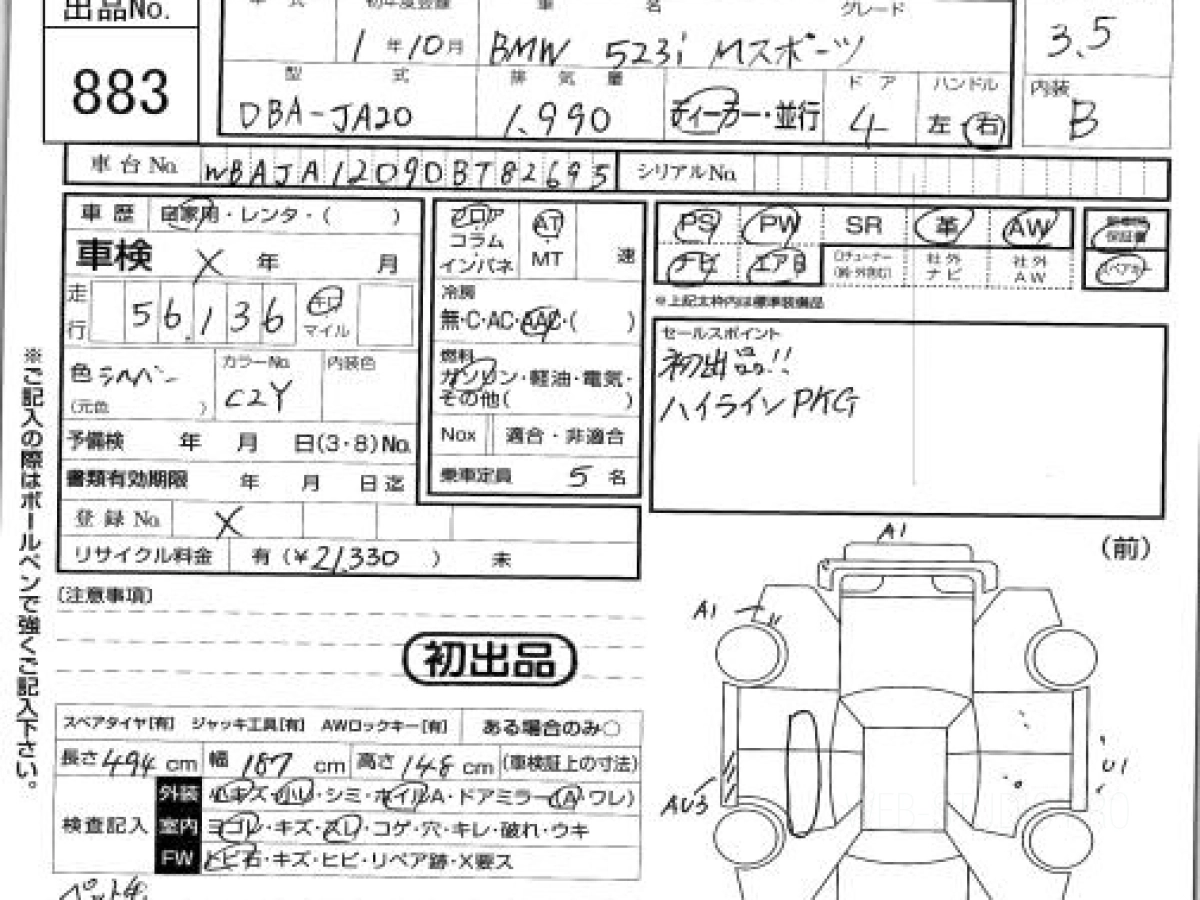 出品No.
883
年 式 初年度登録 車 名 グレード
1年10月 BMW 523i Mスポーツ
3.5
型 式 排 気 量 ド ア ハンドル
DBA-JA20 1,990 ディーラー・並行 4 左・右
内装
B
車台No. WBAJA12090BT82695 シリアルNo.
車歴 自家用・レンタ・( )
車検 X 年 月
走行 56,136 キロ マイル
色 シルバー (元色 )
カラーNo. C2Y
内装色
予備検 年 月 日(3・8)No.
書類有効期限 年 月 日迄
登録No. X
リサイクル料金 有(¥21,330 ) 未
フロア コラム インパネ
AT MT 速
冷房
無・C・AC・AAC・( )
燃料
ガソリン・軽油・電気・
その他( )
Nox 適合・非適合
乗車定員 5名
PS PW SR 革 AW
保証書
ナビ エアB
社外ナビ 社外AW
スペアキー
※上記太枠内は標準装備品
セールスポイント
初出品!!
ハイラインPKG
※ご記入の際はボールペンで強くご記入下さい。
(注意事項)
初出品
スペアタイヤ[有] ジャッキ工具[有] AWロックキー[有] ある場合のみ○
長さ494cm 幅187cm 高さ148cm (車検証上の寸法)
検査記入
外装 小キズ・小凹・シミ・ホイルA・ドアミラー(A・ワレ)
室内 ヨゴレ・キズ・スレ・コゲ・穴・キレ・破れ・ウキ
FW トビ石・キズ・ヒビ・リペア跡・X要ス
(前)
A1
A1
AU3
U1